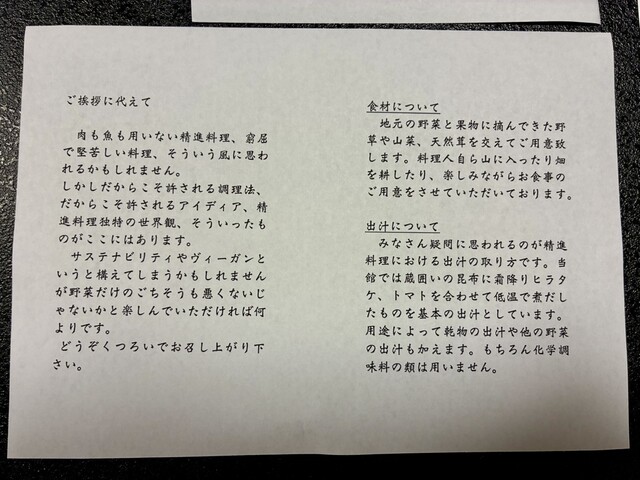 ご挨拶に代えて
肉も魚も用いない精進料理、窮屈
で堅苦しい料理、そういう風に思わ
れるかもしれません。
しかしだからこそ許される調理法、
だからこそ許されるアイディア、精
進料理独特の世界観、そういったも
のがここにはあります。
サステナビリティやヴィーガンと
いうと構えてしまうかもしれません
が野菜だけのごちそうも悪くないじ
ゃないかと楽しんでいただければ何
よりです。
どうぞくつろいでお召し上がり下
さい。
食材について
地元の野菜と果物に摘んできた野
草や山菜、天然茸を交えてご用意致
します。料理人自ら山に入ったり畑
を耕したり、楽しみながらお食事の
ご用意をさせていただいております。
出汁について
みなさん疑問に思われるのが精進
料理における出汁の取り方です。当
館では蔵囲いの昆布に霜降りヒラタ
ケ、トマトを合わせて低温で煮だし
たものを基本の出汁としています。
用途によって乾物の出汁や他の野菜
の出汁も加えます。もちろん化学調
味料の類は用いません。